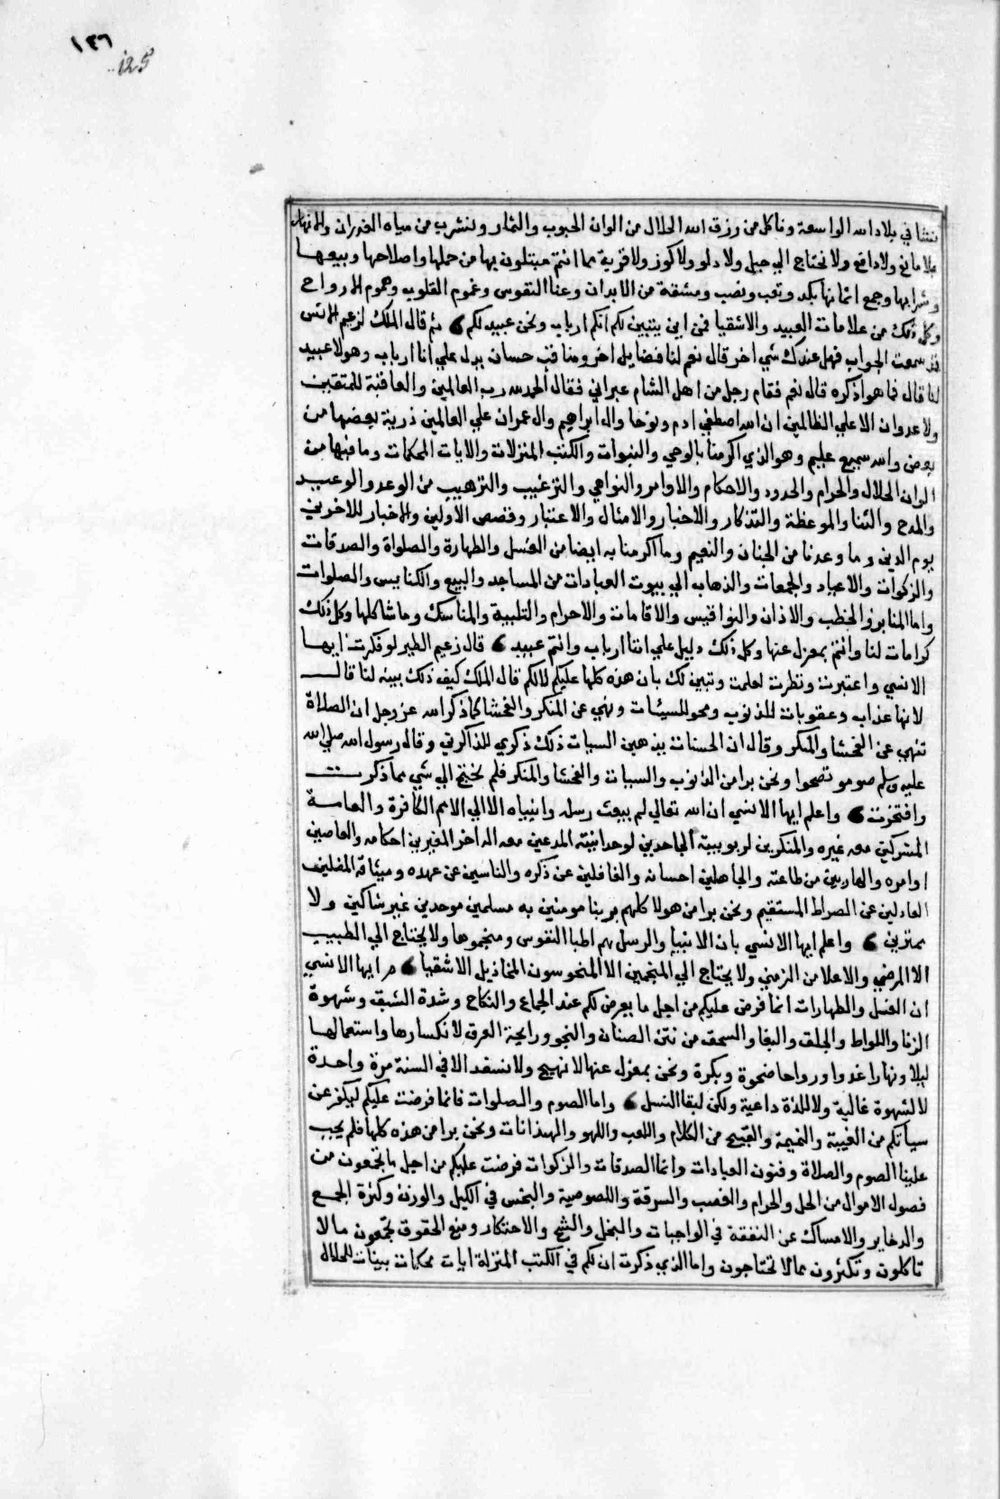 ١٢٦
125
نشا في بلاد الله الواسعة وناكل من رزق الله الحلال من الوان الحبوب والثمار ونشرب من مياه الغدران والانهار
بلا مانع ولا دافع ولا نحتاج الي حبل ولا دلو ولا كوز ولا قربة مما انتم مبتلون بها من حملها واصلاحها وبيعها
وشرايها وجمع اثمانها بكد وتعب ونصب ومشقة من الابدان وعنا النفوس وغموم القلوب وهموم الارواح
وكل ذلك من علامات العبيد والاشقيا فمن اين يتبين لكم انكم ارباب ونحن عبيد لكم ثم قال الملك لزعيم الانس
قد سمعت الجواب فهل عندك شي اخر قال نعم لنا فضايل اخر ومناقب حسان يدل علي انا ارباب وهولا عبيد
لنا قال فما هو اذكره قال نعم فقام رجل من اهل الشام عبراني فقال الحمد لله رب العالمين والعاقبة للمتقين
ولا عدوان الا علي الظالمين ان الله اصطفي ادم ونوحا وال ابراهيم وال عمران علي العالمين ذرية بعضها من
بعض والله سميع عليم وهو الذي اكرمنا بالوحي والنبوات والكتب المنزلات والايات المحكمات وما فيها من
الوان الحلال والحرام والحدود والاحكام والاوامر والنواهي والترغيب والترهيب من الوعد والوعيد
والمدح والثنا والموعظة والتذكار والاخبار والامثال والاعتبار وقصص الاولين والاخبار للاخرين
يوم الدين وما وعدنا من الجنان والنعيم وما اكرمنا به ايضا من الغسل والطهارة والصلواة والصدقات
والزكوات والاعياد والجمعات والذهاب الي بيوت العبادات من المساجد والبيع والكنايس والصلوات
واما المنابر والخطب والاذان والنواقيس والاقامات والاحرام والتلبية والمناسك وما شاكلها وكل ذلك
كرامات لنا وانتم بمعزل عنها وكل ذلك دليل علي اننا ارباب وانتم عبيد قال زعيم الطير لو فكرت ايها
الانسي واعتبرت ونظرت لعلمت وتبين لك بان هذه كلها عليكم لا لكم قال الملك كيف ذلك بينه لنا قال
لانها عذاب وعقوبات للذنوب ومحو للسيئات ونهي عن المنكر والفحشا كما ذكر الله عز وجل ان الصلاة
تنهي عن الفحشا والمنكر وقال ان الحسنات يذهبن السيات ذلك ذكري للذاكرين وقال رسول الله صلي الله
عليه وسلم صوموا تصحوا ونحن برا من الذنوب والسيات والفحشا والمنكر فلم نحتج الي شي مما ذكرت
وافتخرت واعلم ايها الانسي ان الله تعالي لم يبعث رسله وانبياه الا الي الامم الكافرة والعامة
المشركين معه غيره والمنكرين لربوبيته الجاحدين لوحدانيته المدعين معه اله اخر المغيرين احكامه والعاصين
اوامره والهاربين من طاعته والجاهلين احسانه والغافلين عن ذكره والناسين عن عهده وميثاقه المضلين
العادلين عن الصراط المستقيم ونحن برا من هولا كلهم بربنا مومنين به مسلمين موحدين غير شاكين ولا
ممترين واعلم ايها الانسي بان الانبيا والرسل هم اطبا النفوس ومنجموها ولا يحتاج الي الطبيب
الا المرضي والاعلا من الزمني ولا يحتاج الي المنجمين الا المنحوسون المخاذيل الاشقيا ايها الانسي
ان الغسل والطهارات انما فرض عليكم من اجل ما يعرض لكم عند الجماع والنكاح وشدة الشبق وشهوة
الزنا واللواط والجلق والبغا والسحق من نتن الصنان والبخر ورايحة العرق لانكسارها واستعمالها
ليلا ونهارا غدوا ورواحا ضحوة وبكرة ونحن بمعزل عنها لا نهيج ولا نسفد الا في السنة مرة واحدة
لا لشهوة غالبة ولا للذة داعية ولكن لبقا النسل واما الصوم والصلوات فانما فرضت عليكم ليكفر عن
سياتكم من الغيبة والنميمة والقبيح من الكلام واللعب واللهو والهذانات ونحن برا من هذه كلها فلم يجب
علينا الصوم والصلاة وفنون العبادات وانما الصدقات والزكوات فرضت عليكم من اجل ما تجمعون من
فصول الاموال من الحل والحرام والغصب والسرقة واللصوصية والبخس في الكيل والوزن وكثرة الجمع
والدخاير والامساك عن النفقة في الواجبات والبخل والشح والاحتكار ومنع الحقوق تجمعون ما لا
تاكلون وتكثرون مما لا تحتاجون واما الذي ذكرت ان لكم في الكتب المنزلة ايات محكمات بينات للحلال